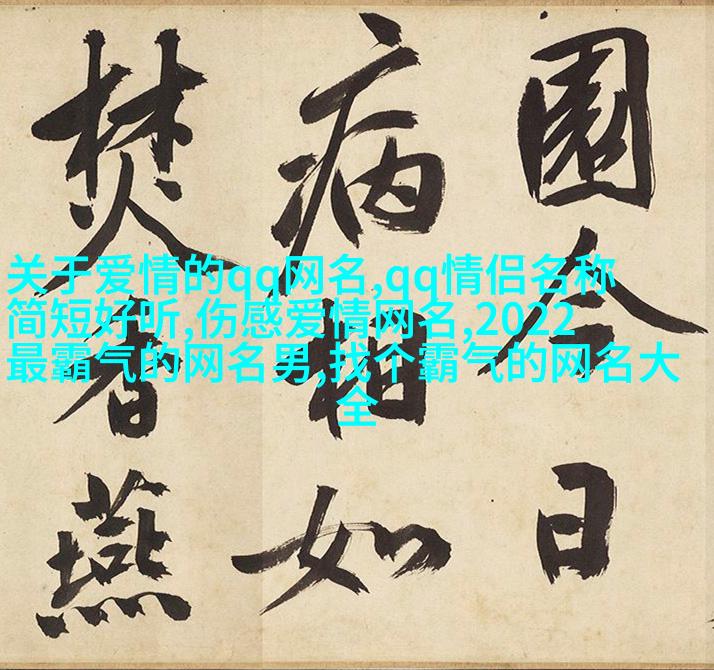 关于爱情的qq网名,qq情侣名称
简短好听,伤感爱情网名,2022
最霸气的网名男,找个霸气的网名大
全
園令日
病相如
焚燕